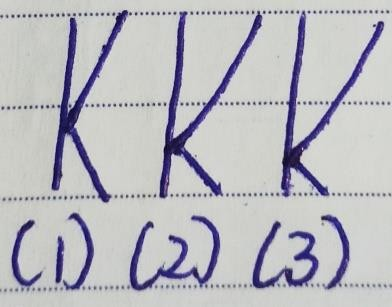 K K K
(1) (2) (3)